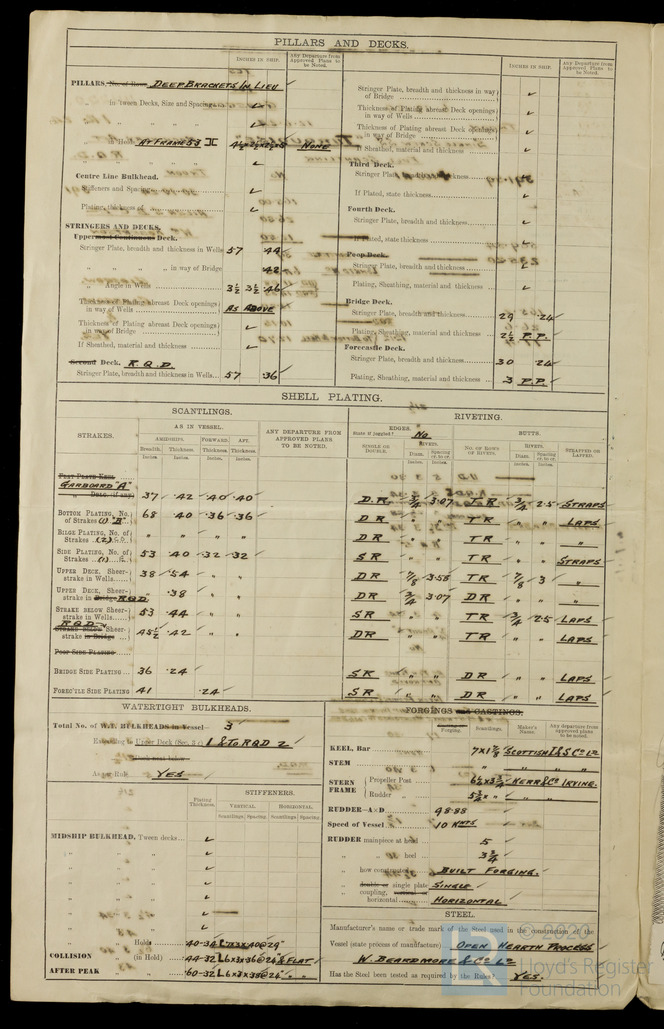 PILLARS AND DECKS.
INCHES IN SHIP. Any Departure from Approved Plans to be Noted.
PILLARS, No. of Rows DEEP BRACKETS IN LIEU
in 'tween Decks, Size and Spacing
in Hold AT FRAME 53 NONE
Centre Line Bulkhead.
Stiffeners and Spacing
Plating, thickness of
STRINGERS AND DECKS.
Uppermost Continuous Deck.
Stringer Plate, breadth and thickness in Wells 57 .44
„ „ „ in way of Bridge .42
„ Angle in Wells 3½ 3½ .46
Thickness of Plating abreast Deck openings in way of Wells AS ABOVE
Thickness of Plating abreast Deck openings in way of Bridge
If Sheathed, material and thickness
Second Deck. R.Q.D.
Stringer Plate, breadth and thickness in Wells 57 .36
INCHES IN SHIP. Any Departure from Approved Plans to be Noted.
Stringer Plate, breadth and thickness in way of Bridge
Thickness of Plating abreast Deck openings in way of Wells
Thickness of Plating abreast Deck openings in way of Bridge
If Sheathed, material and thickness
Third Deck.
Stringer Plate, breadth and thickness
If Plated, state thickness
Fourth Deck.
Stringer Plate, breadth and thickness
If Plated, state thickness
Poop Deck.
Stringer Plate, breadth and thickness
Plating, Sheathing, material and thickness
Bridge Deck.
Stringer Plate, breadth and thickness 29 .24
Plating, Sheathing, material and thickness 2½ P.P.
Forecastle Deck.
Stringer Plate, breadth and thickness 30 .24
Plating, Sheathing, material and thickness 3 P.P.
SHELL PLATING.
SCANTLINGS. RIVETING.
STRAKES. AS IN VESSEL. ANY DEPARTURE FROM APPROVED PLANS TO BE NOTED.
AMIDSHIPS. FORWARD. AFT.
Breadth. Thickness Thickness. Thickness.
Inches. Inches. Inches. Inches.
EDGES. State if joggled? No BUTTS.
SINGLE OR DOUBLE. RIVETS. Diam. Spacing cr. to cr. NO. OF ROWS OF RIVETS. RIVETS. Diam. Spacing cr. to cr. STRAPPED OR LAPPED.
Flat Plate Keel
GARBOARD "A" 37 .42 .40 .40 DR ¾ 3.07 TR ¾ 2.5 STRAPS
BOTTOM PLATING, No. of Strakes (1) "B" 68 .40 .36 .36 DR „ „ TR „ „ LAPS
BILGE PLATING, No. of Strakes (2) „ „ „ „ DR TR „ „ „
SIDE PLATING, No. of Strakes (1) 53 .40 .32 .32 SR „ „ TR „ „ STRAPS
UPPER DECK, Sheerstrake in Wells 38 .54 „ „ DR ⅞ 3.58 TR ⅞ 3 „
UPPER DECK, Sheerstrake in Bridge RQD .38 „ „ DR ¾ 3.07 DR
STRAKE BELOW Sheerstrake in Wells 53 .44 „ „ SR „ „ TR ¾ 2.5 LAPS
R.Q.D. STRAKE BELOW Sheerstrake in Bridge 45½ .42 „ „ DR TR „ „ LAPS
POOP SIDE PLATING
BRIDGE SIDE PLATING 36 .24 SR „ „ DR „ „ LAPS
FOREC'TLE SIDE PLATING 41 .24 SR „ „ DR „ „ LAPS
WATERTIGHT BULKHEADS.
Total No. of W.T. BULKHEADS in Vessel 3
Extending to Upper Deck (Sec. 3 c) 1 & TO RQD 2
YES
Plating Thickness. STIFFENERS.
VERTICAL. HORIZONTAL.
Scantlings Spacing Scantlings Spacing
MIDSHIP BULKHEAD, 'Tween decks
„ „ „
„ Holds .40-34 L 7x3x.40@29"
COLLISION „ (in Hold) .44-32 L 6x3x36@24" & FLAT
AFTER PEAK „ „ .60-32 L 6x3x38@24" „ „
FORGINGS and CASTINGS.
Forging. Scantlings. Maker's Name. Any departure from approved plans to be noted.
KEEL, Bar 7x1⅞ SCOTTISH I & S Co Ld
STEM „ „ „
STERN FRAME Propeller Post 6½x3¾ KERR & Co IRVINE.
Rudder „ 5¾x „ „
RUDDER—A×D 98.88
Speed of Vessel 10 KNTS
RUDDER mainpiece at head 5
„ „ heel 3¾
„ how constructed BUILT FORGING.
„ double or single plate SINGLE
„ coupling, vertical or horizontal HORIZONTAL
STEEL.
Manufacturer's name or trade mark of the Steel used in the construction of the
Vessel (state process of manufacture) OPEN HEARTH PROCESS
W. BEARDMORE & Co Ld
Has the Steel been tested as required by the Rules? YES.
© 2020
Lloyd's Register
Foundation